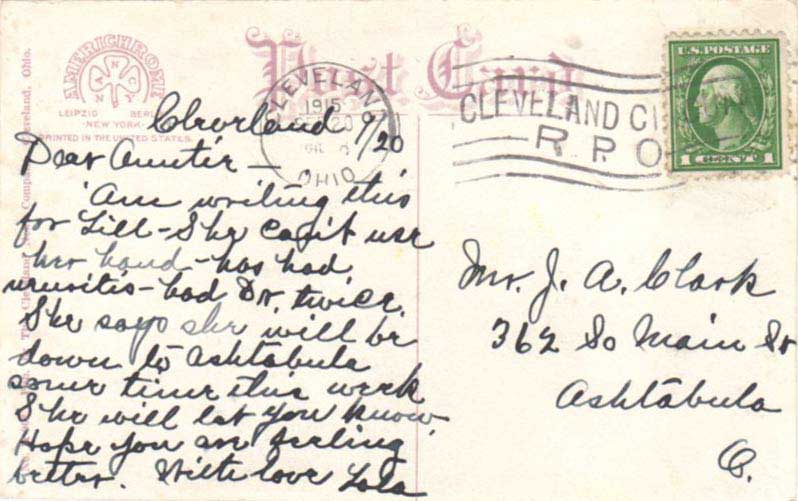 Post Card
AMERICHROME
ANCNY
LEIPZIG BERLIN
NEW YORK
PRINTED IN THE UNITED STATES.
CLEVELAND
1915
SEP 20
OHIO
CLEVELAND CI
R.P.O.
U.S. POSTAGE
1 1
Cleveland 9/20
Dear Auntie –
Am writing this
for Lill – She can't use
her hand – has had
neuritis – had Dr. twice.
She says she will be
down to Ashtabula
some time this week
She will let you know.
Hope you are feeling
better. With love Lola
Mr. J. A. Clark
362 So Main St
Ashtabula
O.